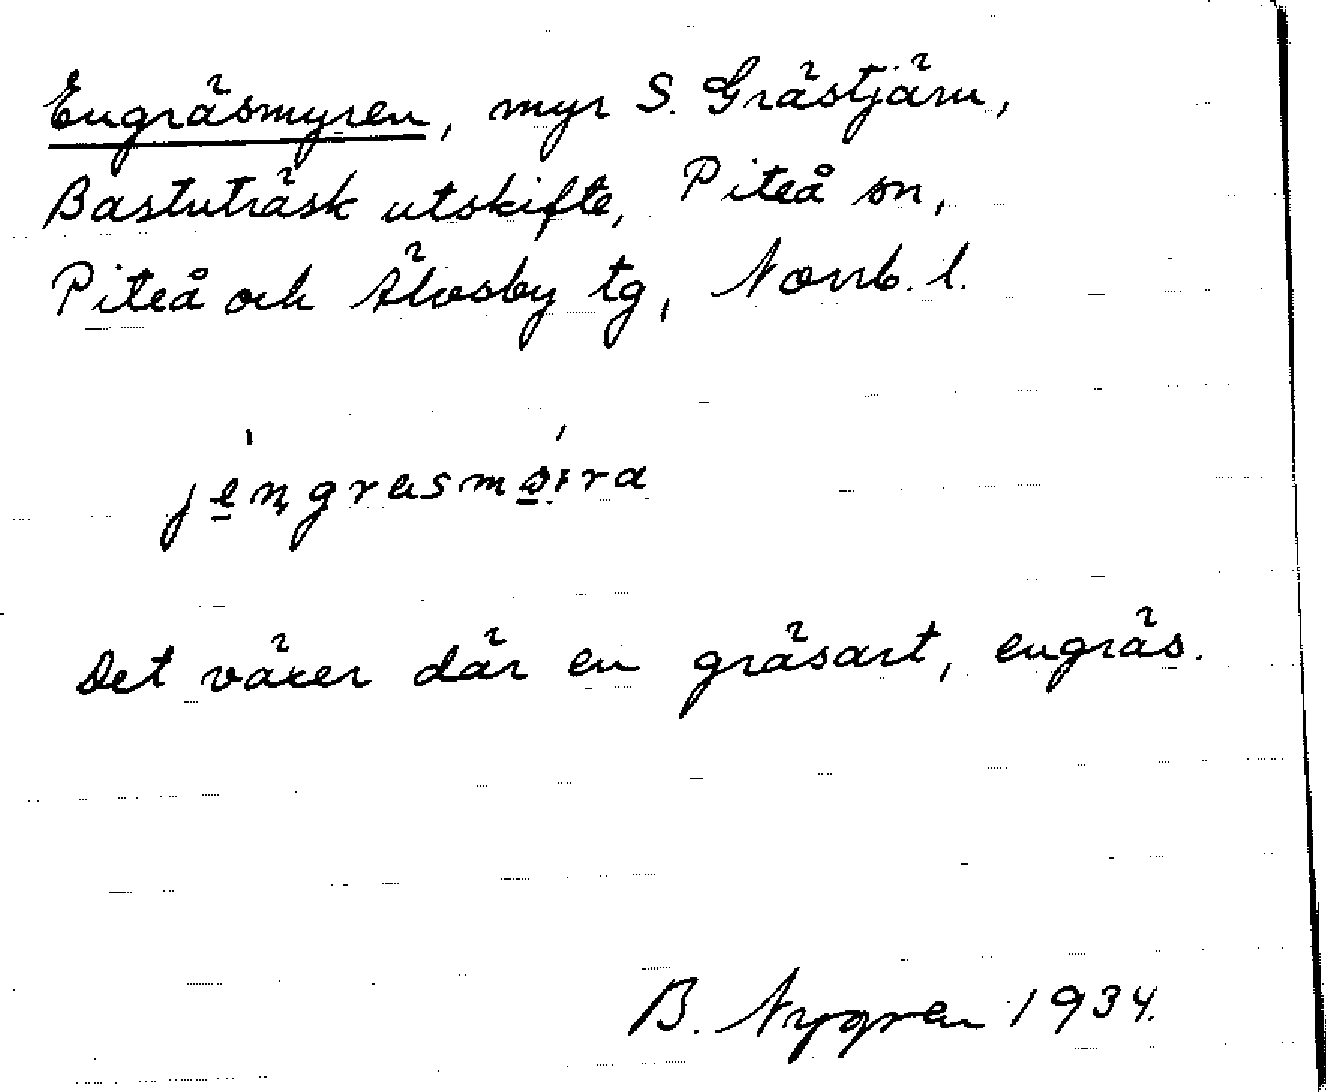 Engräsmyren, myr S. Grästjärn,
Bastuträsk utskifte, Piteå sn,
Piteå och Älvsby tg, Norrb. l.
Det växer där en gräsart, engräs.
B. Nygren 1934.